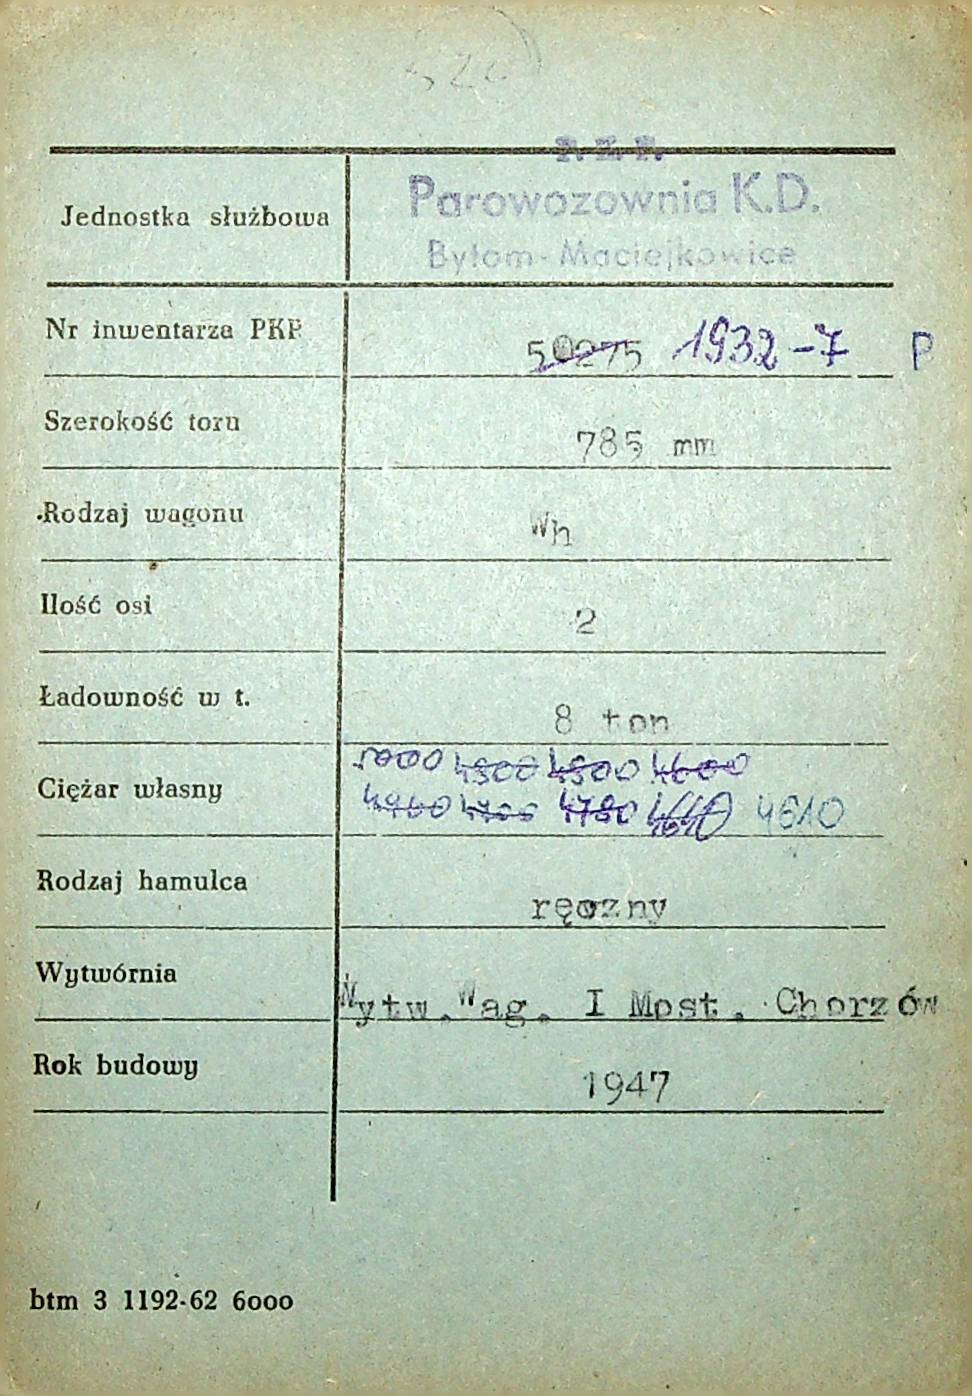 P. K. P.
Parowozownia K.D.
Jednostka służbowa
Bytom-Maciejkowice
Nr inwentarza PKP
50275 1932-7 P
Szerokość toru
785 mm
Rodzaj wagonu
Wh
Ilość osi
2
Ładowność w t.
8 ton
5000 4900 4500 4600
Ciężar własny
4940 4780 4610
Rodzaj hamulca
ręczny
Wytwórnia
Wytw.Wag. I Most. Chorzów
Rok budowy
1947
btm 3 1192-62 6000